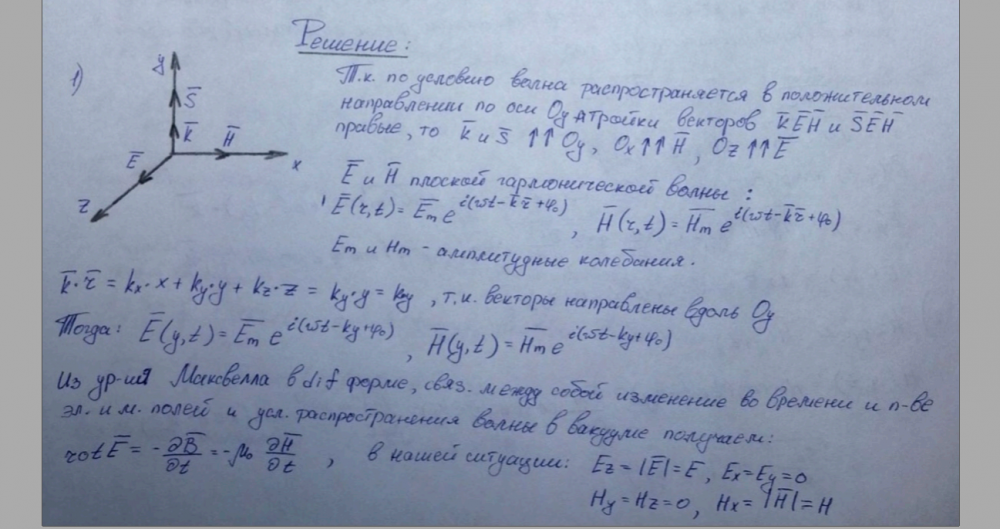 Решение:
1)
y
S̄
k̄
H̄
Ē
x
z
Т.к. по условию волна распространяется в положительном
направлении по оси Oy и тройки векторов k̄ĒH̄ и S̄ĒH̄
правые, то k̄ и S̄ ↑↑ Oy, Ox↑↑H̄, Oz↑↑Ē
Ē и H̄ плоской гармонической волны:
Ē(r,t) = Ēm e^{i(ωt-k̄r̄+φ₀)}, H̄(r,t) = H̄m e^{i(ωt-k̄r̄+φ₀)}
Em и Hm - амплитудные колебания.
k̄·r̄ = kx·x + ky·y + kz·z = ky·y = ky, т.к. векторы направлены вдоль Oy
Тогда: Ē(y,t) = Ēm e^{i(ωt-ky+φ₀)}, H̄(y,t) = H̄m e^{i(ωt-ky+φ₀)}
Из ур-ия Максвелла в dif форме, связ. между собой изменение во времени и п-ве
эл. и м. полей и усл. распространения волны в вакууме получаем:
rot Ē = -∂B̄/∂t = -μ₀ ∂H̄/∂t, в нашей ситуации: Ez = |Ē| = E, Ex = Ey = 0
Hy = Hz = 0, Hx = |H̄| = H